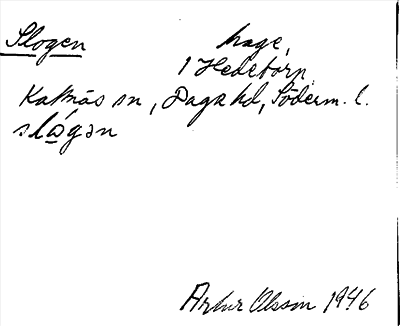 Slogen hage,
1 Hedetorp
Kattnäs sn, Daga hd, Söderm. l.
slågən
Artur Olsson 1946